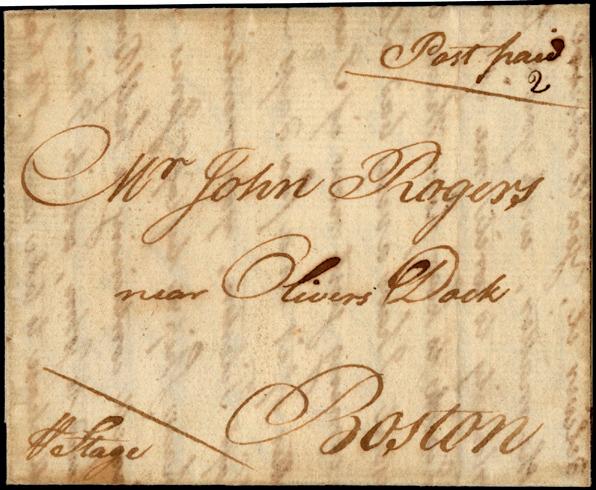 Post paid
2
Mr John Rogers
near Olivers Dock
Boston
⅌ Stage